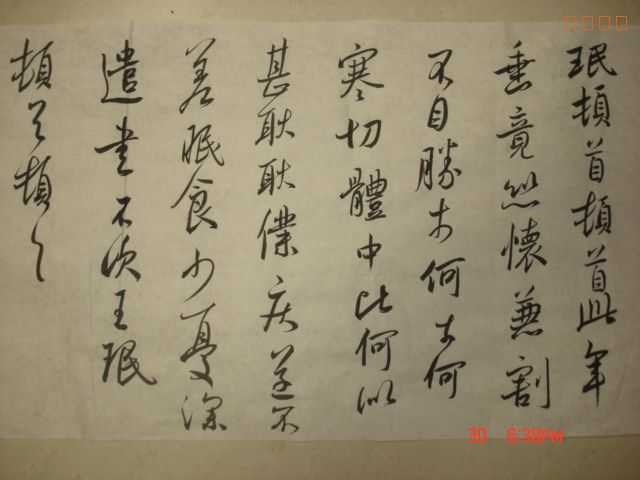 珉頓首頓首此年
垂竟懷兼割
不自勝奈何奈何
寒切體中比何似
甚耿耿僕疾遂不
差眠食少憂深
遣書不次王珉
頓首頓〻
30 6:39PM